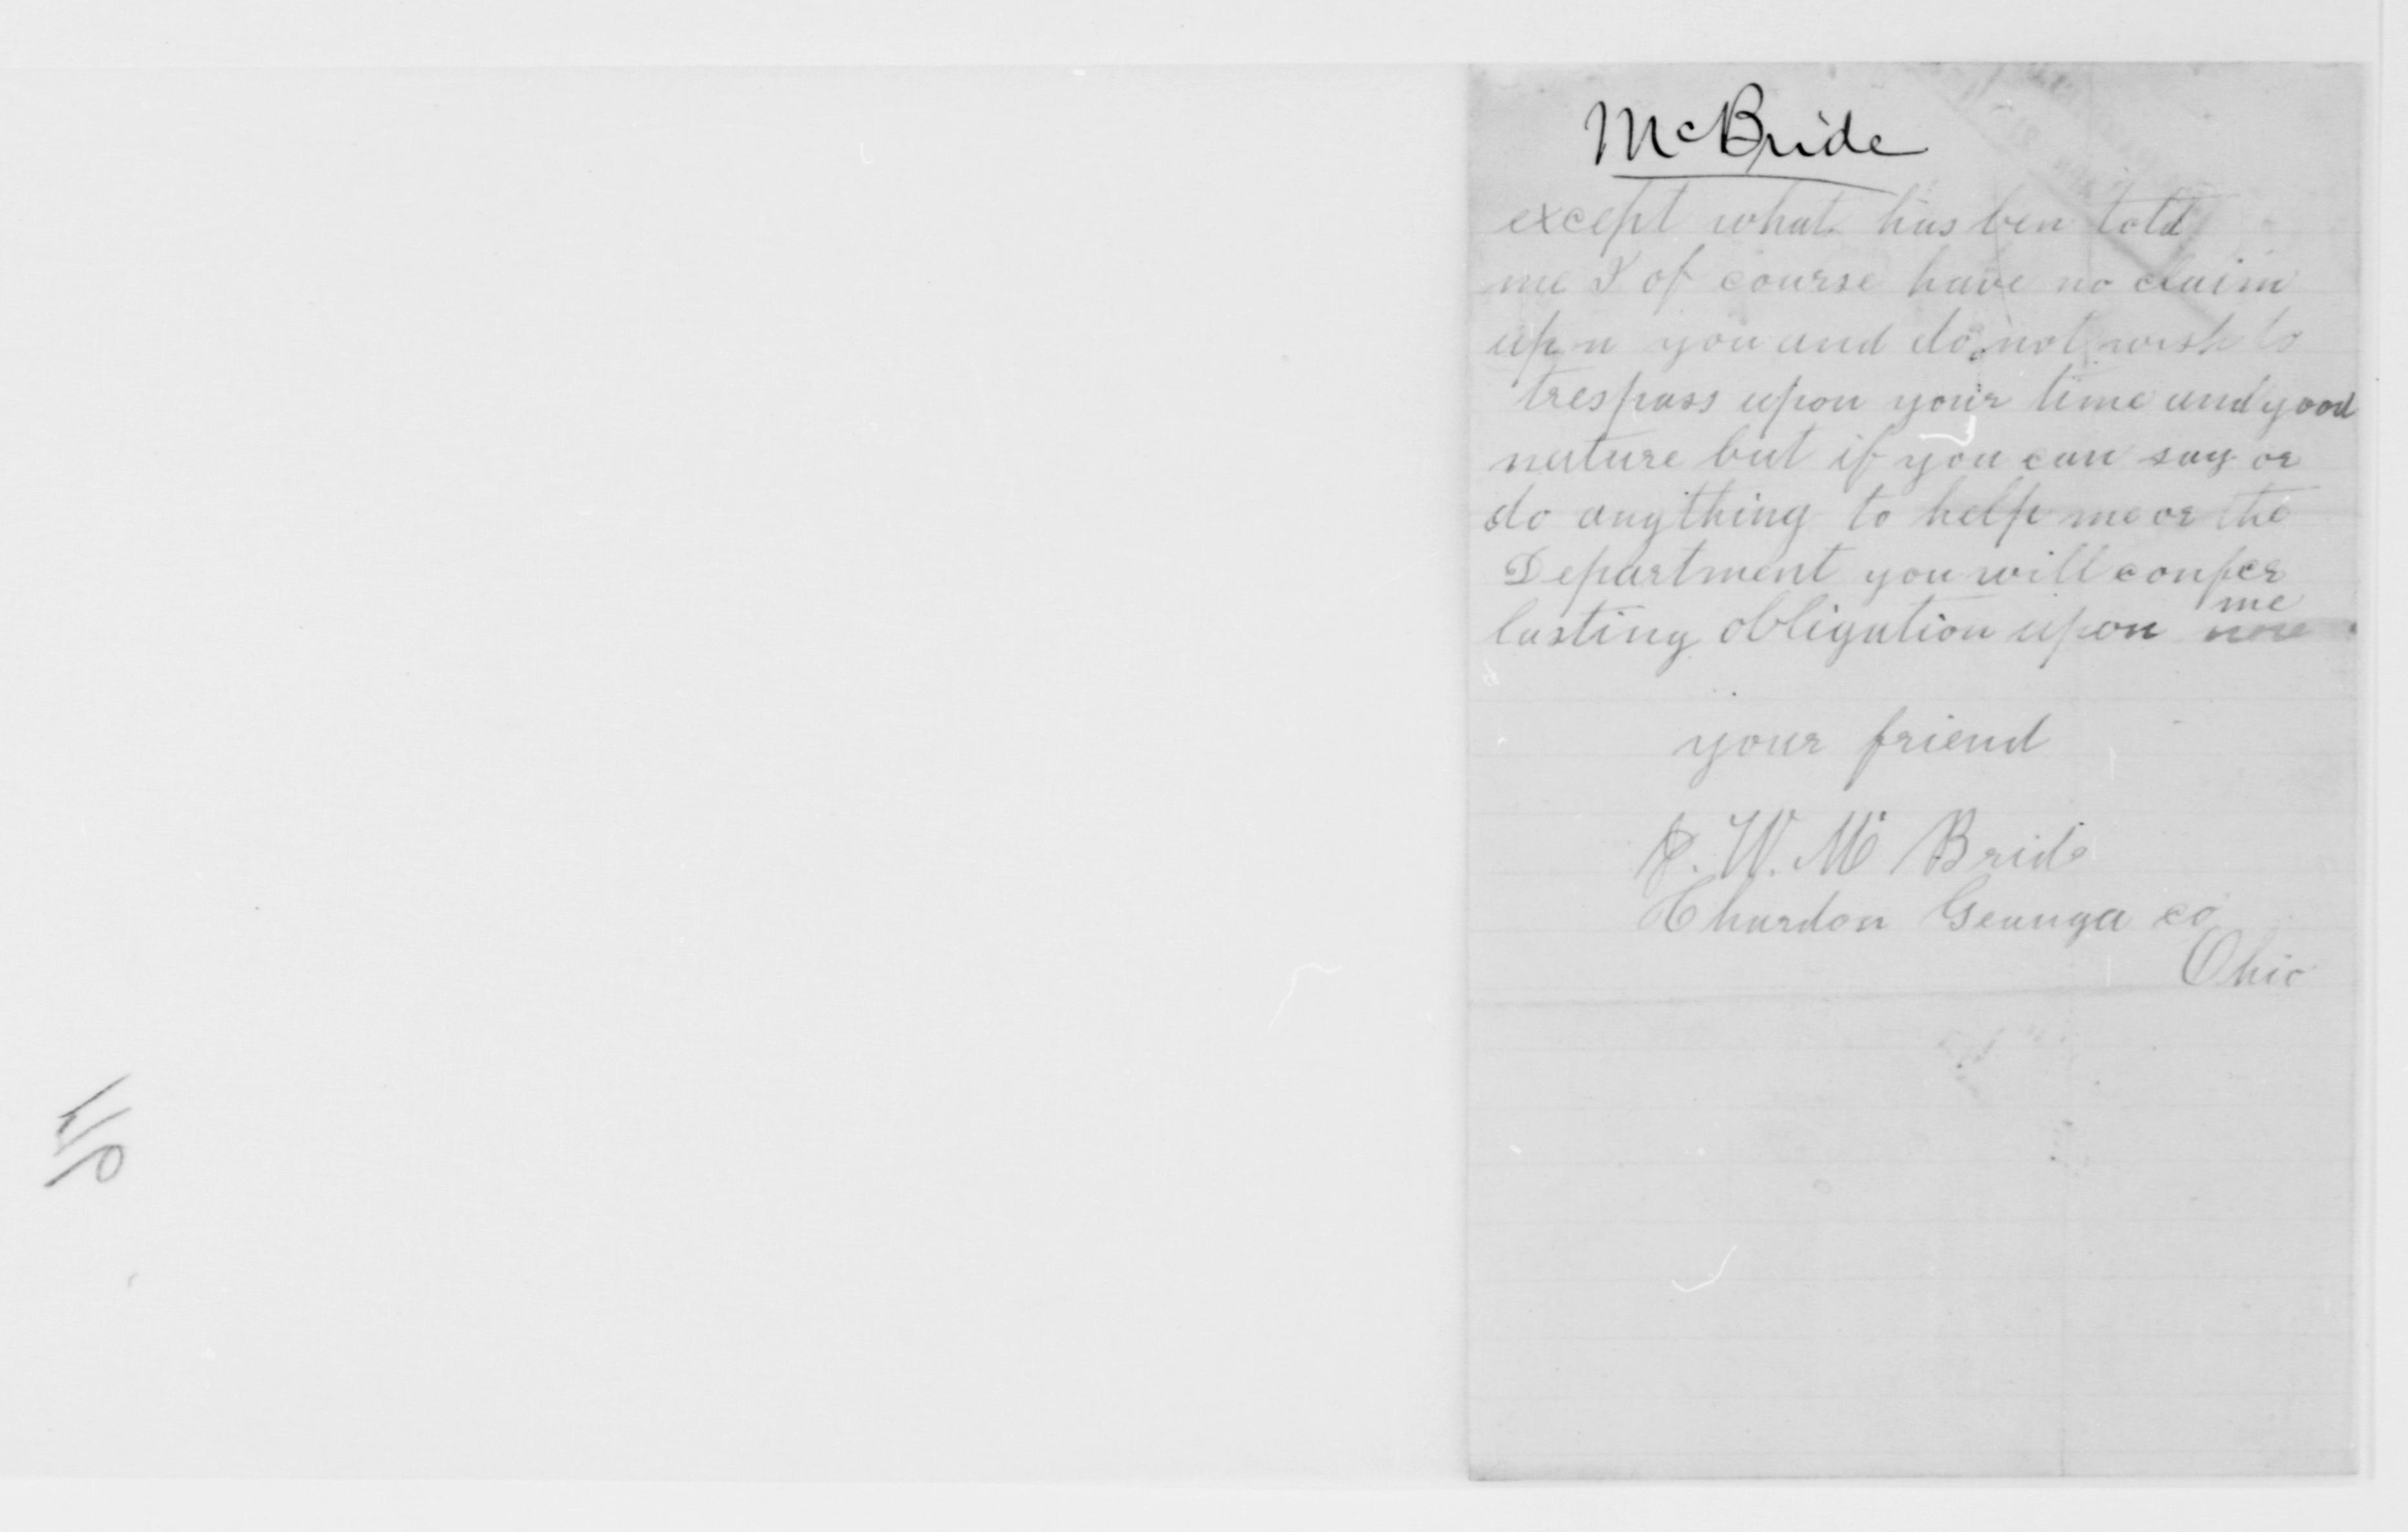 McBride
except what has ben told
me I of course have no claim
upon you and do not wish to
trespass upon your time and good
nature but if you can say or
do anything to help me or the
Department you will confer
me
lasting obligation upon
your friend
J. W. Mc Bride
Chardon Geauga co
Ohio